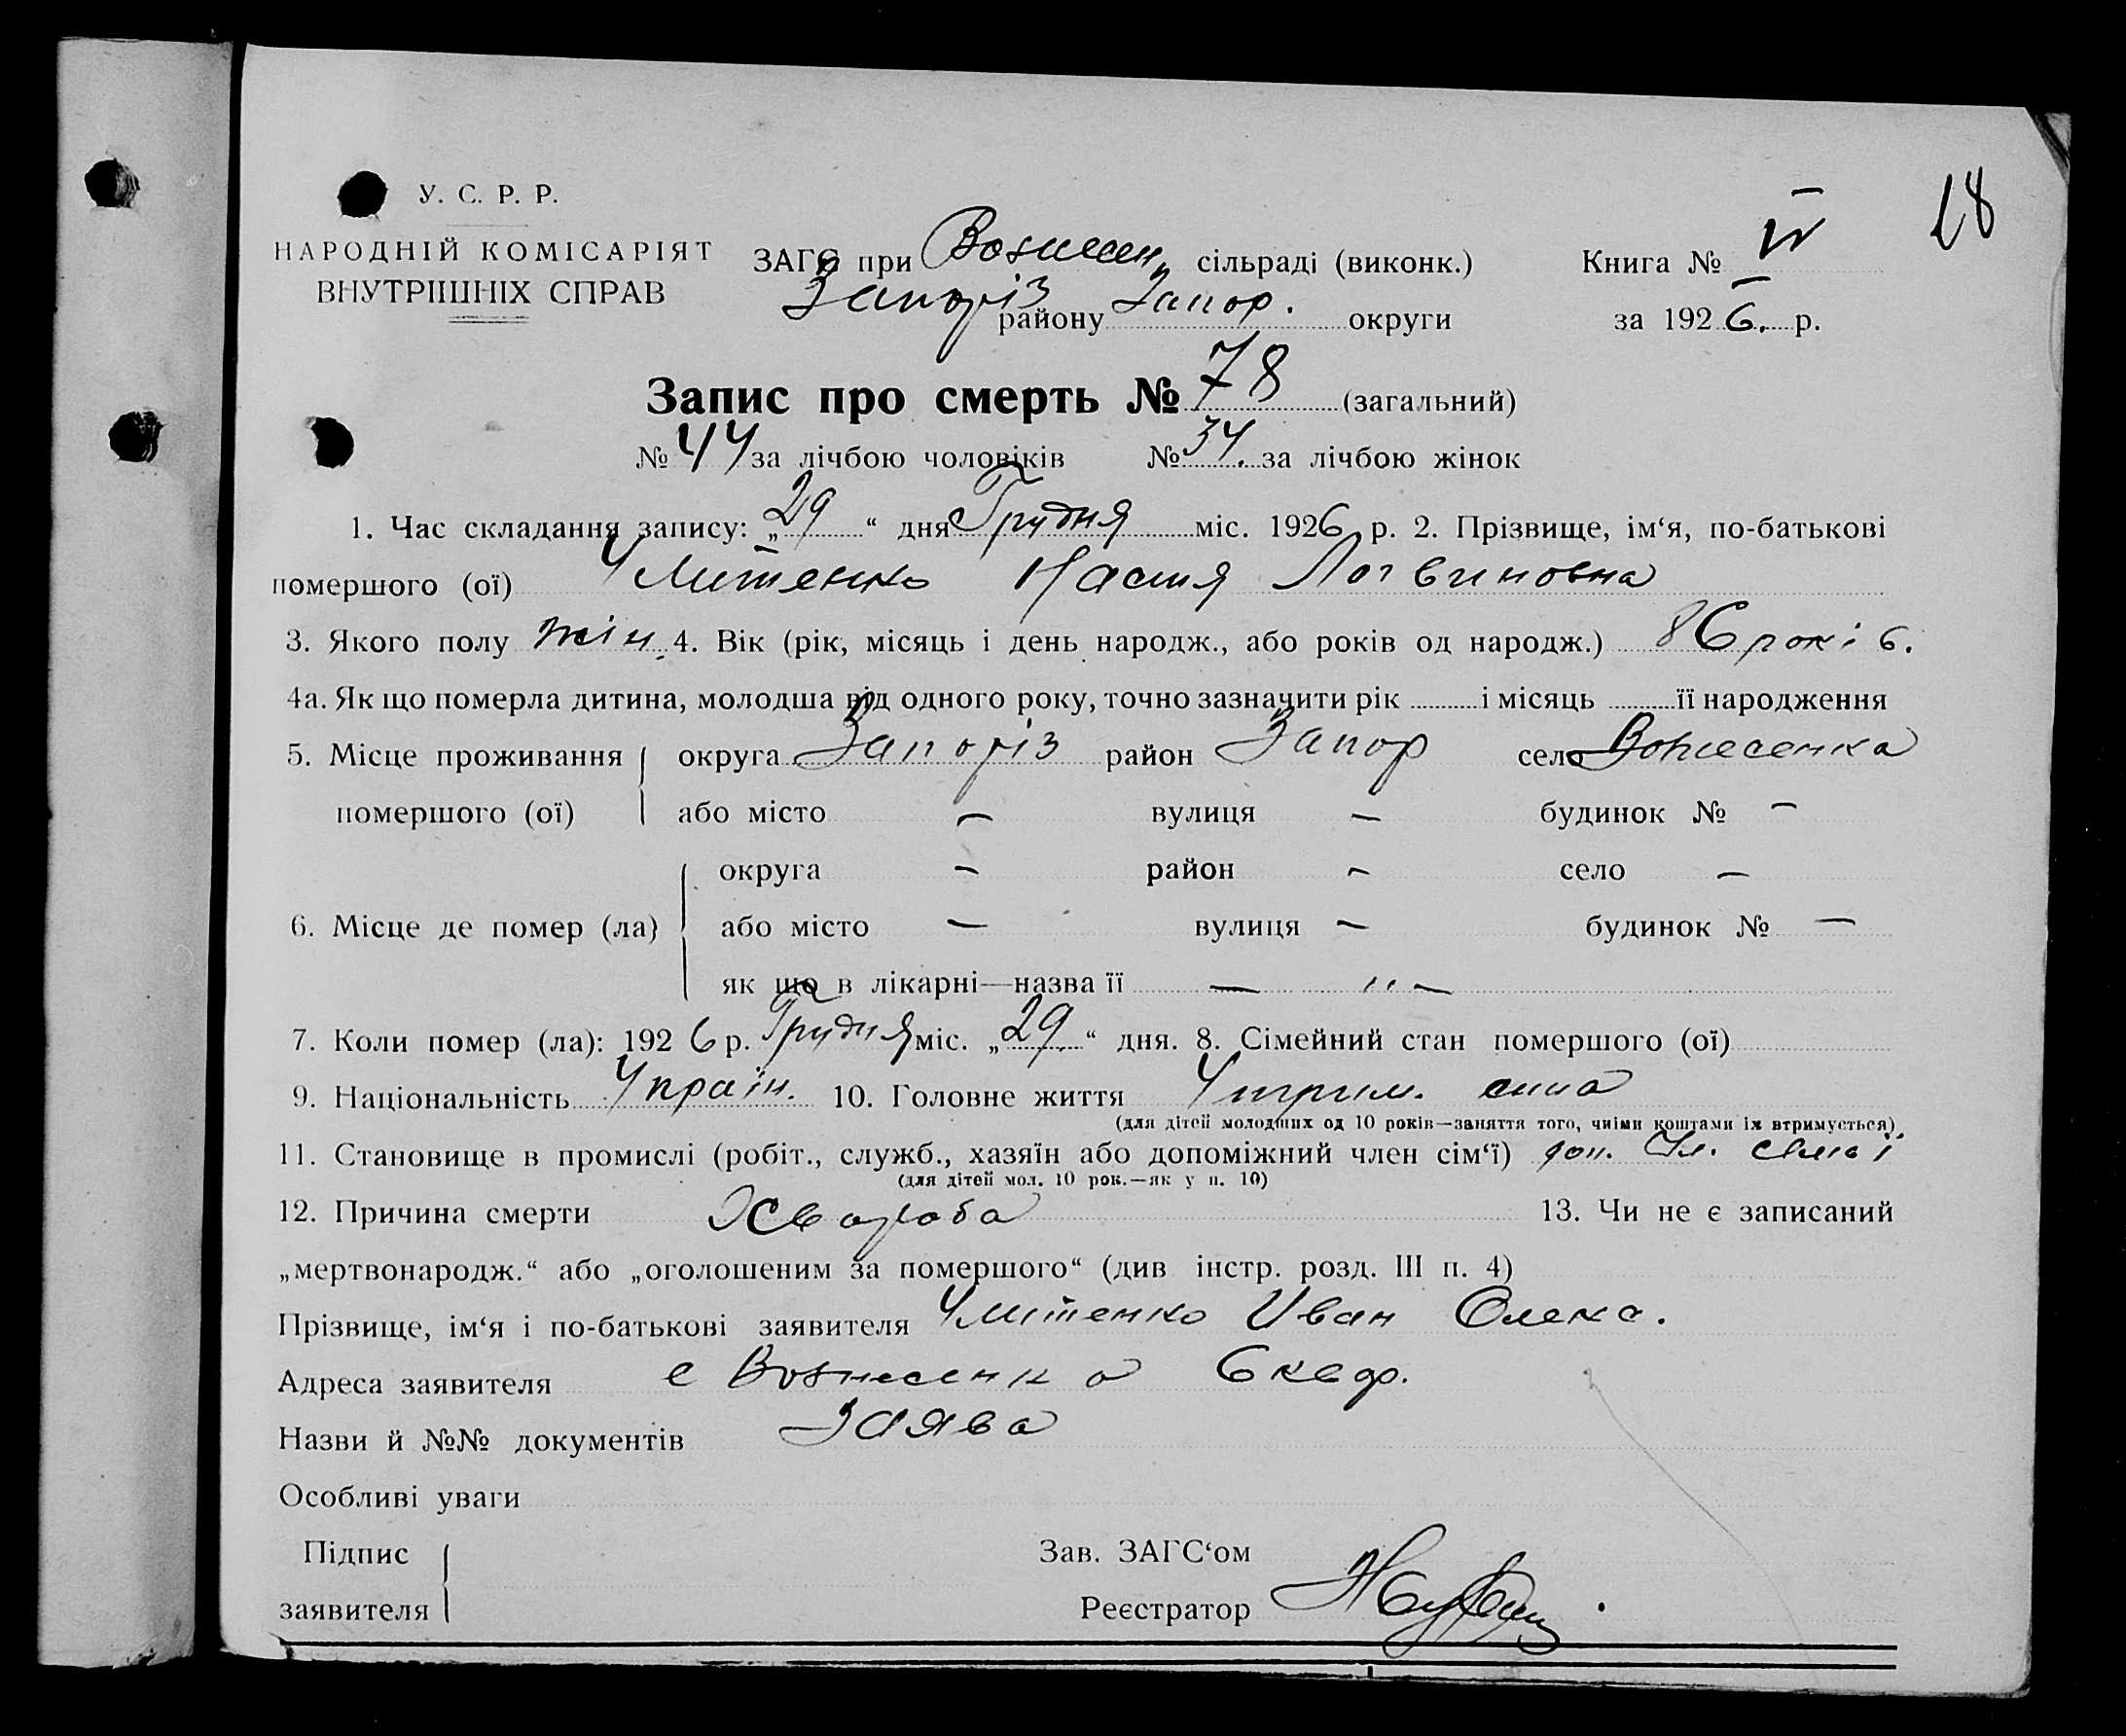 28
У. С. Р. Р.
НАРОДНІЙ КОМІСАРІЯТ
ВНУТРІШНІХ СПРАВ
ЗАГС при Вознесен. сільраді (виконк.)
Запоріз району Запор. округи
Книга № IV
за 1926. р.
Запис про смерть № 78 (загальний)
№ 44 за лічбою чоловіків № 34. за лічбою жінок
1. Час складання запису: „29“ дня Грудня міс. 1926 р. 2. Прізвище, ім‘я, по-батькові
помершого (ої) Настя Логвиновна
3. Якого полу жін. 4. Вік (рік, місяць і день народж., або років од народж.) 86 років.
4а. Як що померла дитина, молодша від одного року, точно зазначити рік і місяць її народження
5. Місце проживання округа Запоріз район Запор село Вознесенка
помершого (ої) або місто — вулиця — будинок № —
округа — район — село —
6. Місце де помер (ла) або місто — вулиця — будинок № —
як що в лікарні—назва її — „ —
7. Коли помер (ла): 1926 р. Грудня міс. „29“ дня. 8. Сімейний стан помершого (ої)
9. Національність Україн. 10. Головне життя Утрим. сина
(для дітей молодших од 10 років—заняття того, чиїми коштами їх втримується)
11. Становище в промислі (робіт., служб., хазяїн або допоміжний член сім‘ї) доп. чл. сімьї
(для дітей мол. 10 рок.—як у п. 10)
12. Причина смерти Хвороба 13. Чи не є записаний
„мертвонародж.“ або „оголошеним за помершого“ (див інстр. розд. III п. 4)
Прізвище, ім‘я і по-батькові заявителя Иван Олекс.
Адреса заявителя с Вознесенка 6
Назви й №№ документів Заява
Особливі уваги
Підпис
заявителя
Зав. ЗАГС‘ом
Реєстратор